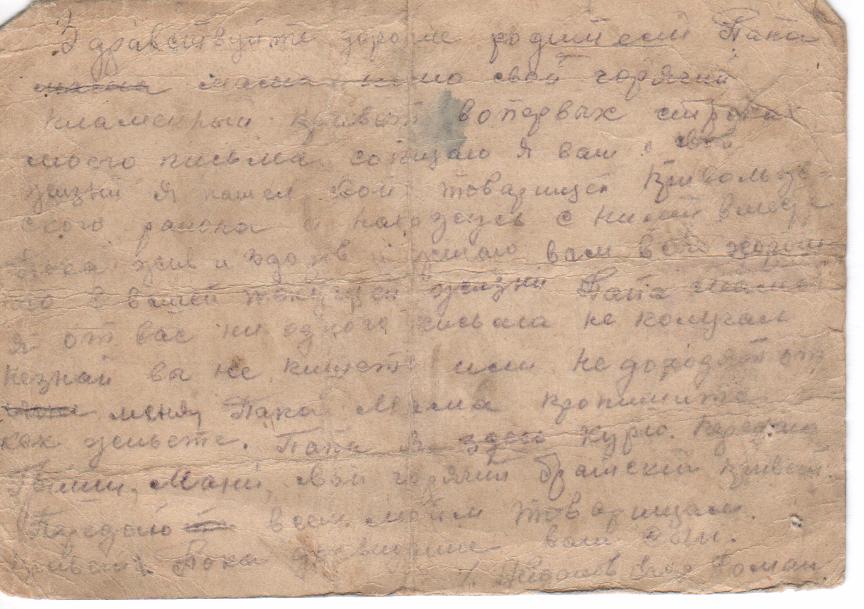 Здравствуйте дорогие родители Папа
мама свой горячий
пламенный привет вопервых строках
моего письма сообщаю я вам
жизни я нашел свои товарищей
ского района и нахожусь с ними вместе
Пока жив и здоров и желаю вам всего хорош
его в вашей текущей жизни Папа Мама
я от вас ни одного письма не получал
незнай вы не пишете или не доходят от
меня, Папа Мама пропишите
как живете. Папа я курю. Передаю
Мани, свой горячий братский привет.
Передаю всем моим товарищам.
привет. Пока досвидание ваш сын.
Роман